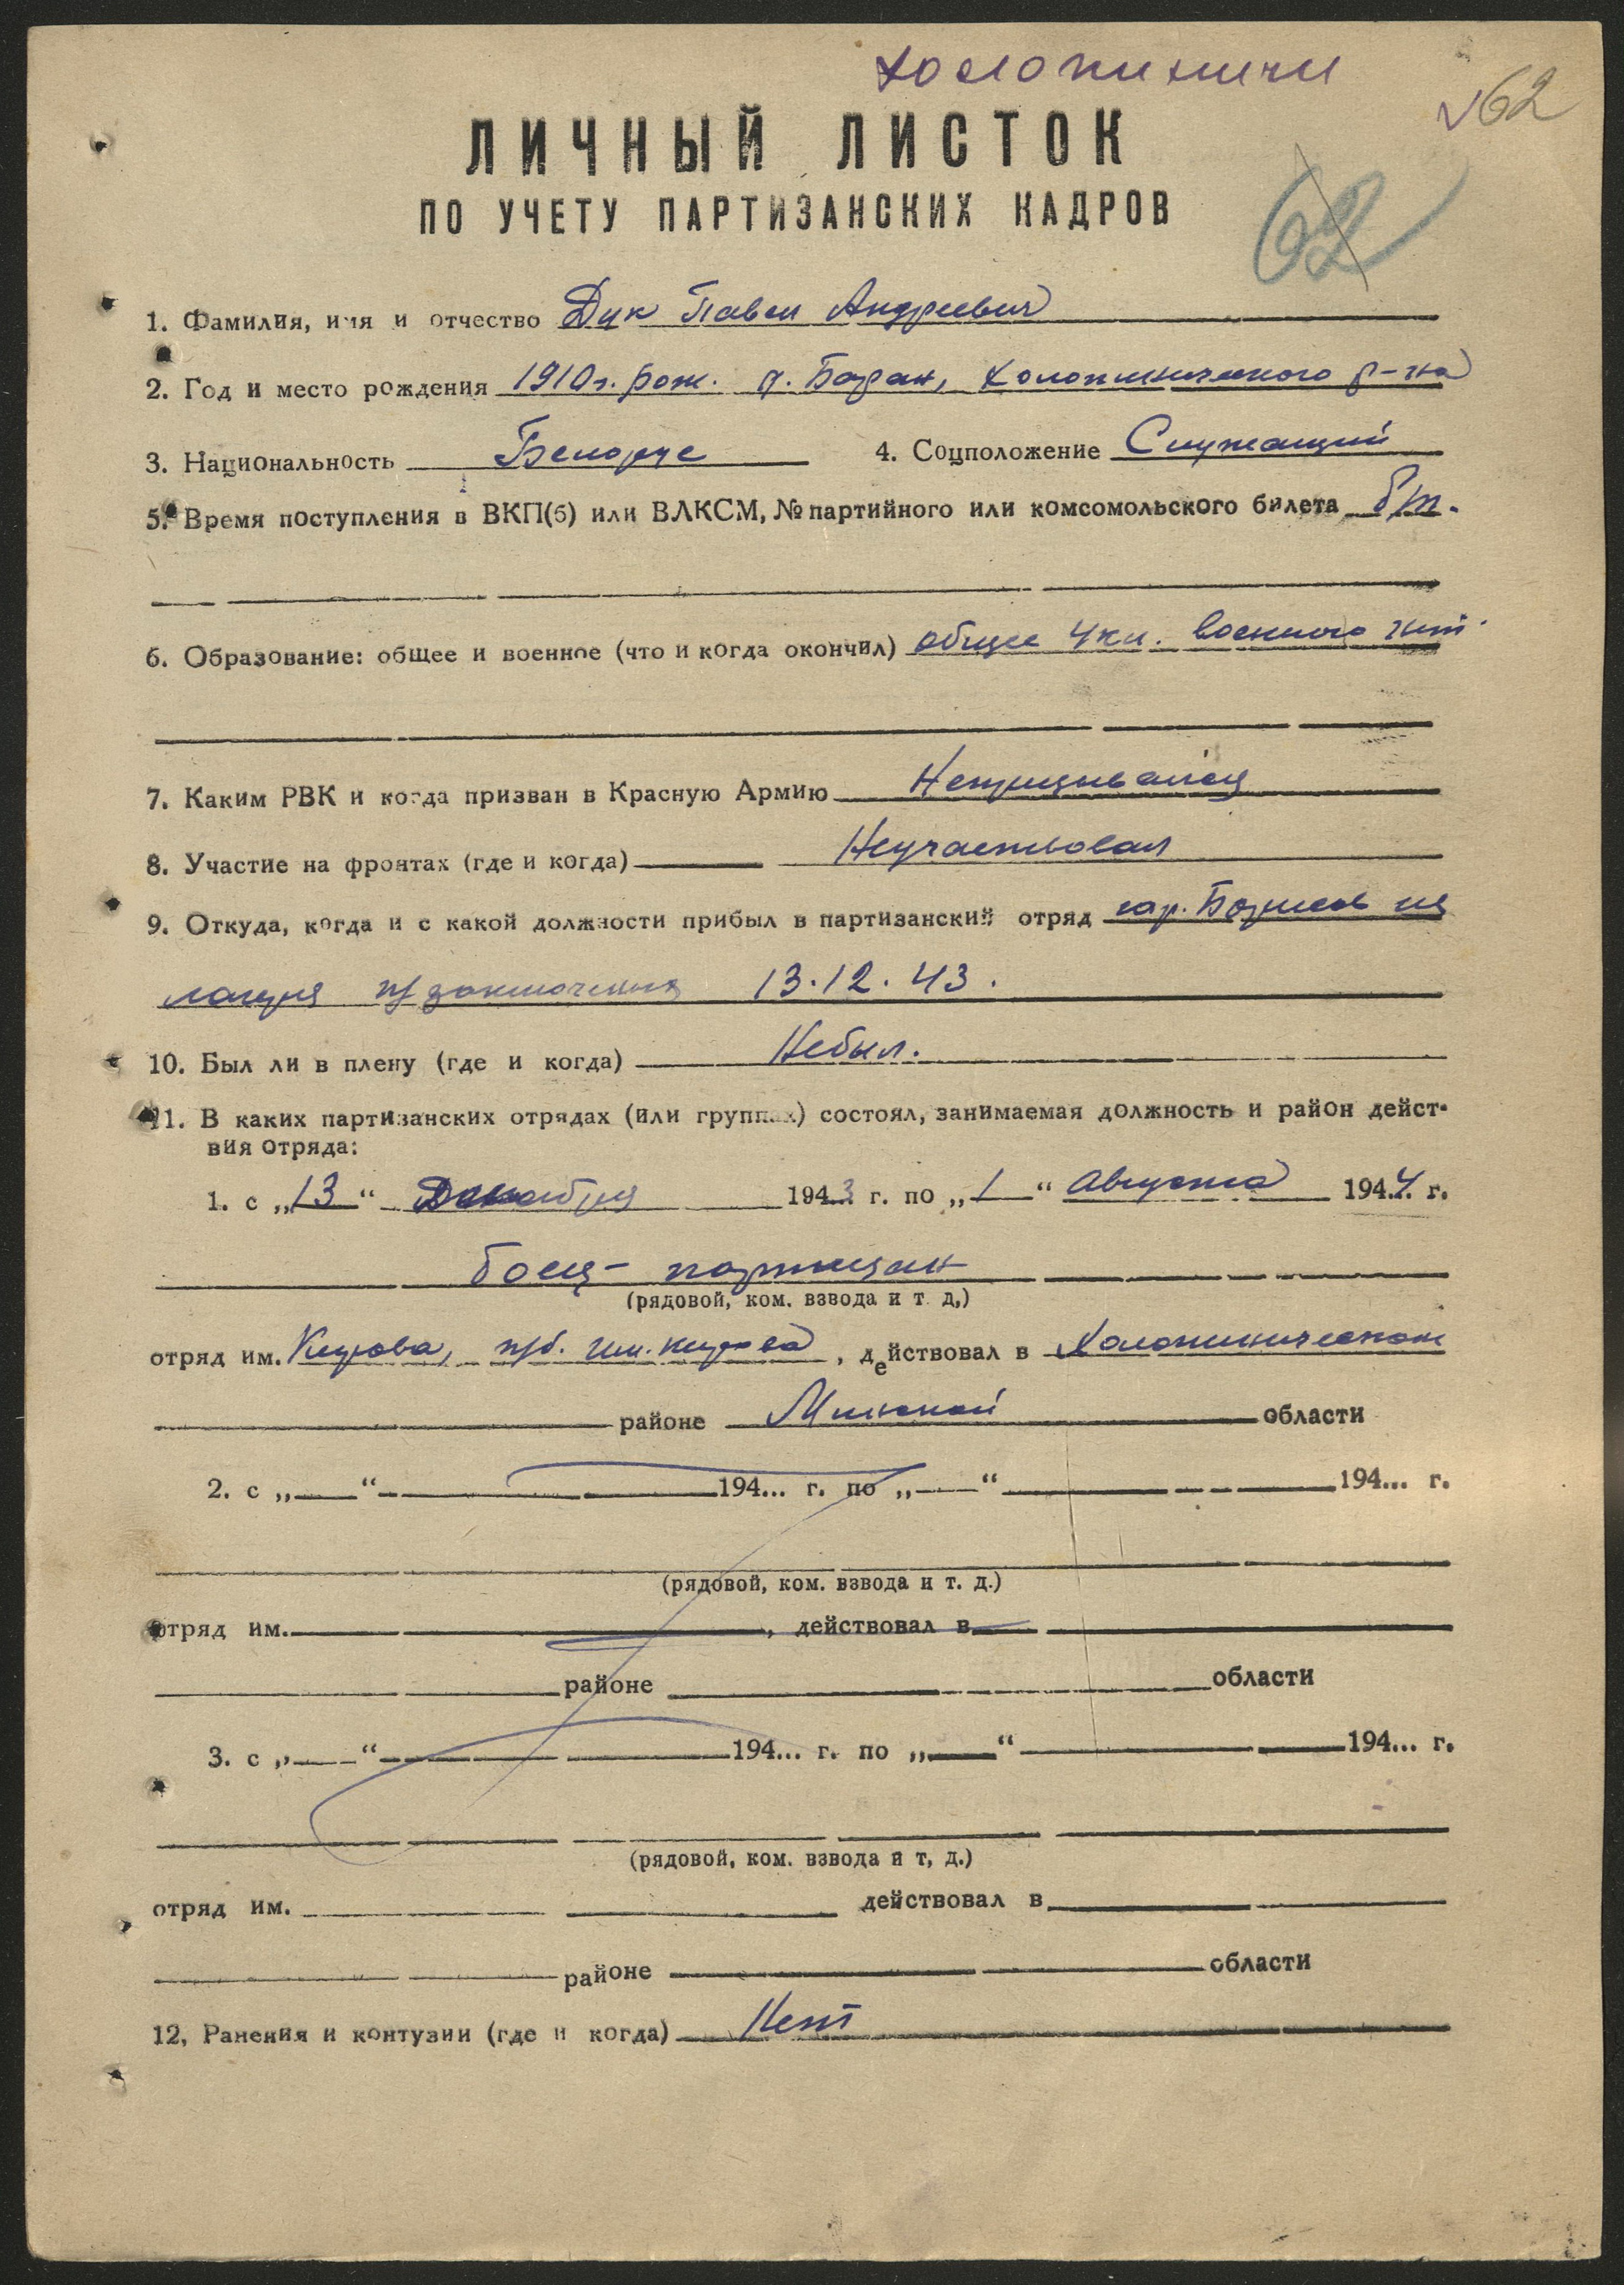 Холопиничи
√62
ЛИЧНЫЙ ЛИСТОК
62
ПО УЧЕТУ ПАРТИЗАНСКИХ КАДРОВ
1. Фамилия, имя и отчество Дик Павел Андреевич
2. Год и место рождения 1910 г. рож. д. Баран, Холопиничского р-на
3. Национальность Белорус 4. Соцположение Служащий
5. Время поступления в ВКП(б) или ВЛКСМ, № партийного или комсомольского билета б/п.
6. Образование: общее и военное (что и когда окончил) общее 4 кл. военного нет.
7. Каким РВК и когда призван в Красную Армию Непризывался
8. Участие на фронтах (где и когда) Неучаствовал
9. Откуда, когда и с какой должности прибыл в партизанский отряд гор. Борисов из
лагеря заключения 13.12.43.
10. Был ли в плену (где и когда) Небыл.
11. В каких партизанских отрядах (или группах) состоял, занимаемая должность и район дейст-
вия отряда:
1. с „13“ Декабря 1943 г. по „1“ Августа 1944 г.
боец - партизан
(рядовой, ком. взвода и т. д,)
отряд им. Кирова, п/б. им. Кирова, действовал в Холопиничском
районе Минской области
2. с „ “ 194... г. по „ “ 194... г.
(рядовой, ком. взвода и т. д.)
отряд им. , действовал в
районе области
3. с „ “ 194... г. по „ “ 194... г.
(рядовой, ком. взвода и т, д.)
отряд им. действовал в
районе области
12, Ранения и контузии (где и когда) Нет